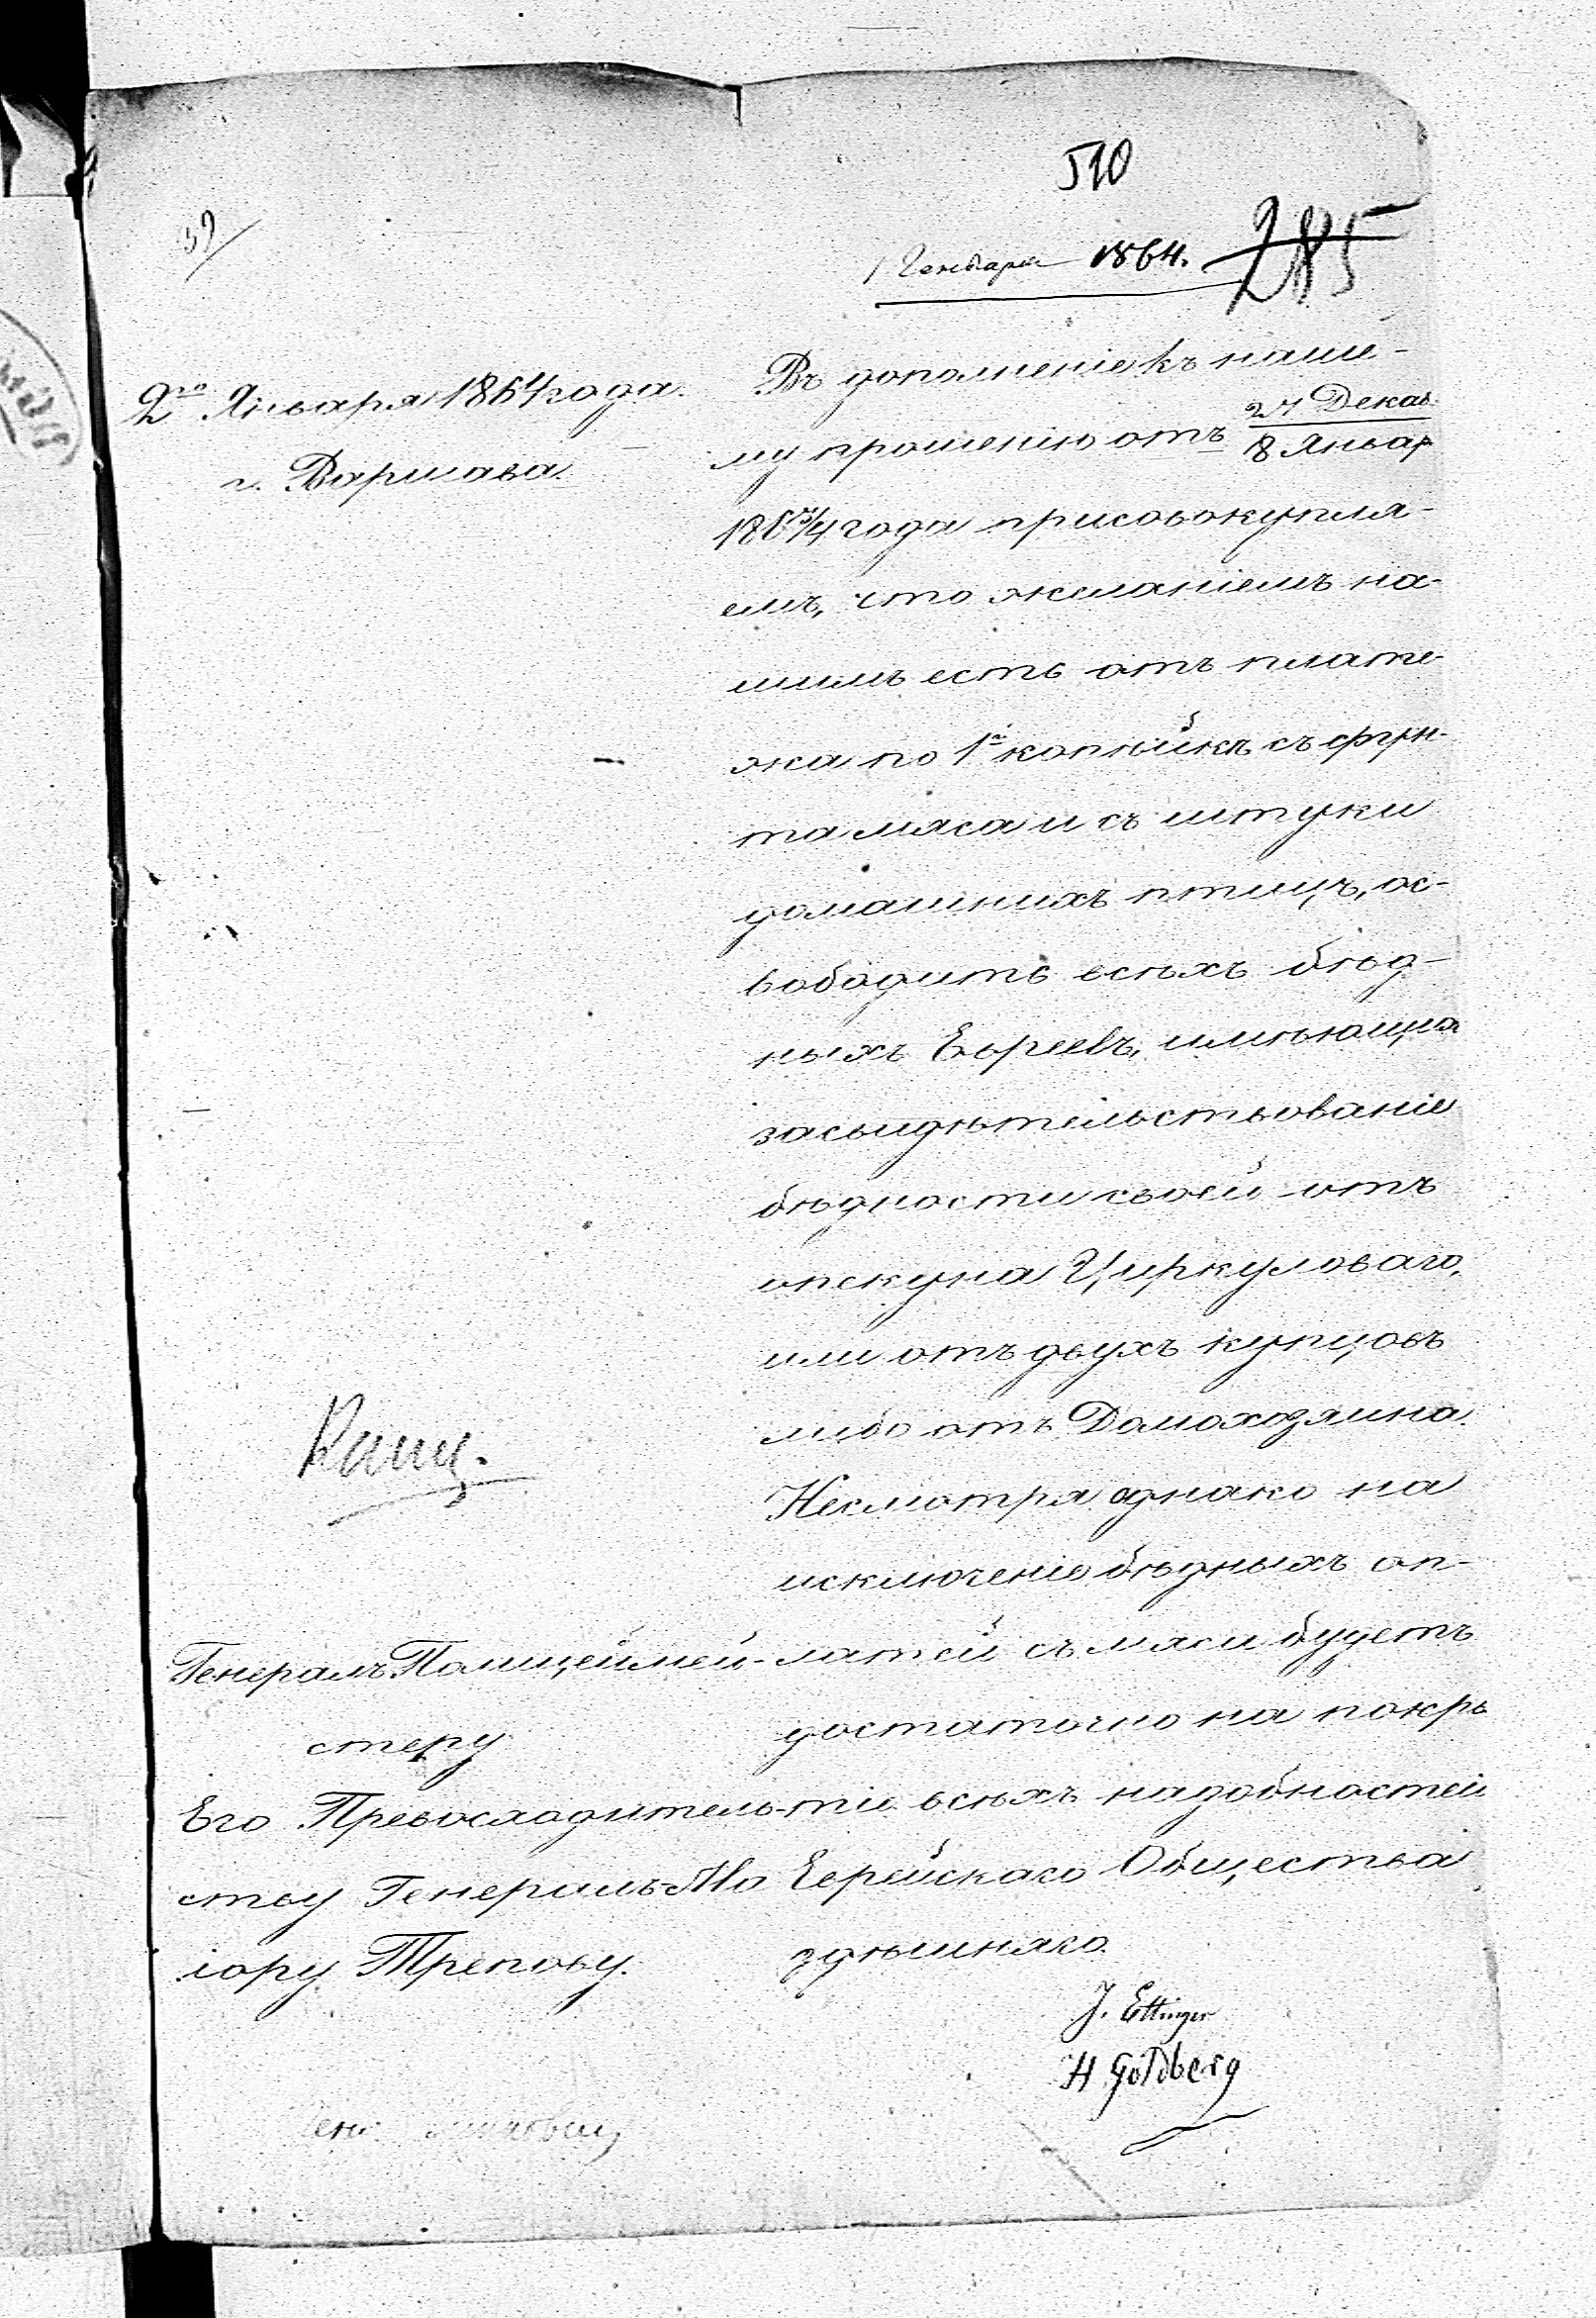 510
39/
1 Генваря 1864.
285
2го Января 1864 года.
г. Варшава.
Въ дополненіе къ наше-
му прошенію отъ 27 Декаб. / 8 Январ
1863/4 года присовокупля-
емъ, что желаніемъ на-
шимъ есть отъ плате-
жа по 1й копѣйкѣ съ фун-
та мяса и съ штуки
домашнихъ птицъ, ос-
вободить всѣхъ бѣд-
ныхъ Евреевъ, имѣющих
засвидѣтельствованіе
бѣдности своей отъ
опекуна Циркуловаго,
или отъ двухъ купцовъ
либо отъ Домохозяина.
Несмотря однако на
исключеніе бѣдныхъ оп-
латей съ мяса будетъ
достаточно на покры
тіе всѣхъ надобностей
Еврейскаго Общества
здѣшняго.
J. Ettinger
H Goldberg
Генералъ Полицеймей-
стеру
Его Превосходитель-
ству Генералъ-Маіору Трепову.